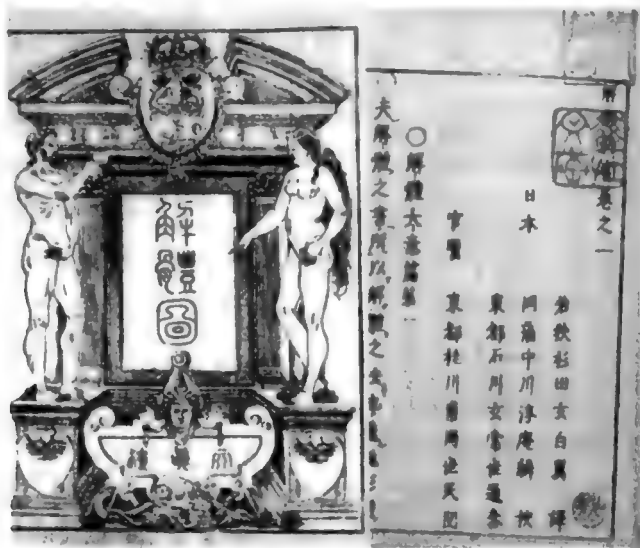 解體圖
卷之一
若狹杉田玄白翼 譯
日本 同藩中川淳庵鱗 校
東都石川玄常世通 參
官醫 東都桂川甫周世民 閱
○解體大意篇第一
夫解體之書所以解體之